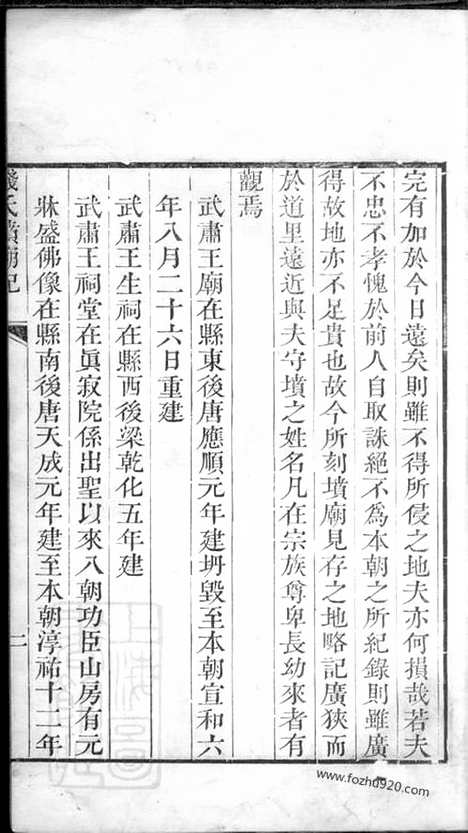 完有加於今日遠矣則雖不得所侵之地夫亦何損哉若夫
不忠不孝愧於前人自取誅絕不為本朝之所紀錄則雖廣
得故地亦不足貴也故今所刻墳廟見存之地略記廣狹而
於道里遠近與夫守墳之姓名凡在宗族尊卑長幼來者有
觀焉
武肅王廟在縣東後唐應順元年建坍毀至本朝宣和六
年八月二十六日重建
武肅王生祠在縣西後梁乾化五年建
武肅王祠堂在眞寂院係出聖以來入朝功臣山房有元
牀盛佛像在縣南後唐天成元年建至本朝淳祐十二年
錢氏墳廟記
二
www.fozhu920.com